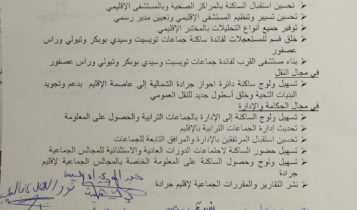 تحسين استقبال الساكنة بالمراكز الصحية وبالمستشفى الإقليمي
تحسين تسيير وتنظيم المستشفى الإقليمي وتعيين مدير رسمي
توفير جميع أنواع التحليلات بالمختبر الإقليمي
خلق قسم للمستعجلات لفائدة ساكنة جماعات تويسيت وسيدي بوبكر وتيولي وراس عصفور
بناء مستشفى القرب لفائدة جماعات تويسيت وسيدي بوبكر وتيولي وراس عصفور
في مجال النقل
تسهيل ولوج ساكنة دائرة احواز جرادة الشمالية إلى عاصمة الإقليم بدعم وتجويد
البنيات التحية وخلق أسطول جديد للنقل العمومي
في مجال الحكامة والإدارة
تسهيل ولوج الساكنة إلى الإدارة بالجماعات الترابية والحصول على المعلومة
تحديث إدارة الجماعات الترابية بالإقليم
تحسين استقبال المرتفقين بالإدارة والمرافق التابعة للجماعات
تسهيل حضور الساكنة لاجتماعات الدورات العادية والاستثنائية للمجالس الجماعية
تسهيل ولوج وحصول الساكنة على المعلومة الخاصة بالمجالس الجماعية لإقليم
جرادة
نشر التقارير والمقررات الجماعية لإقليم جرادة